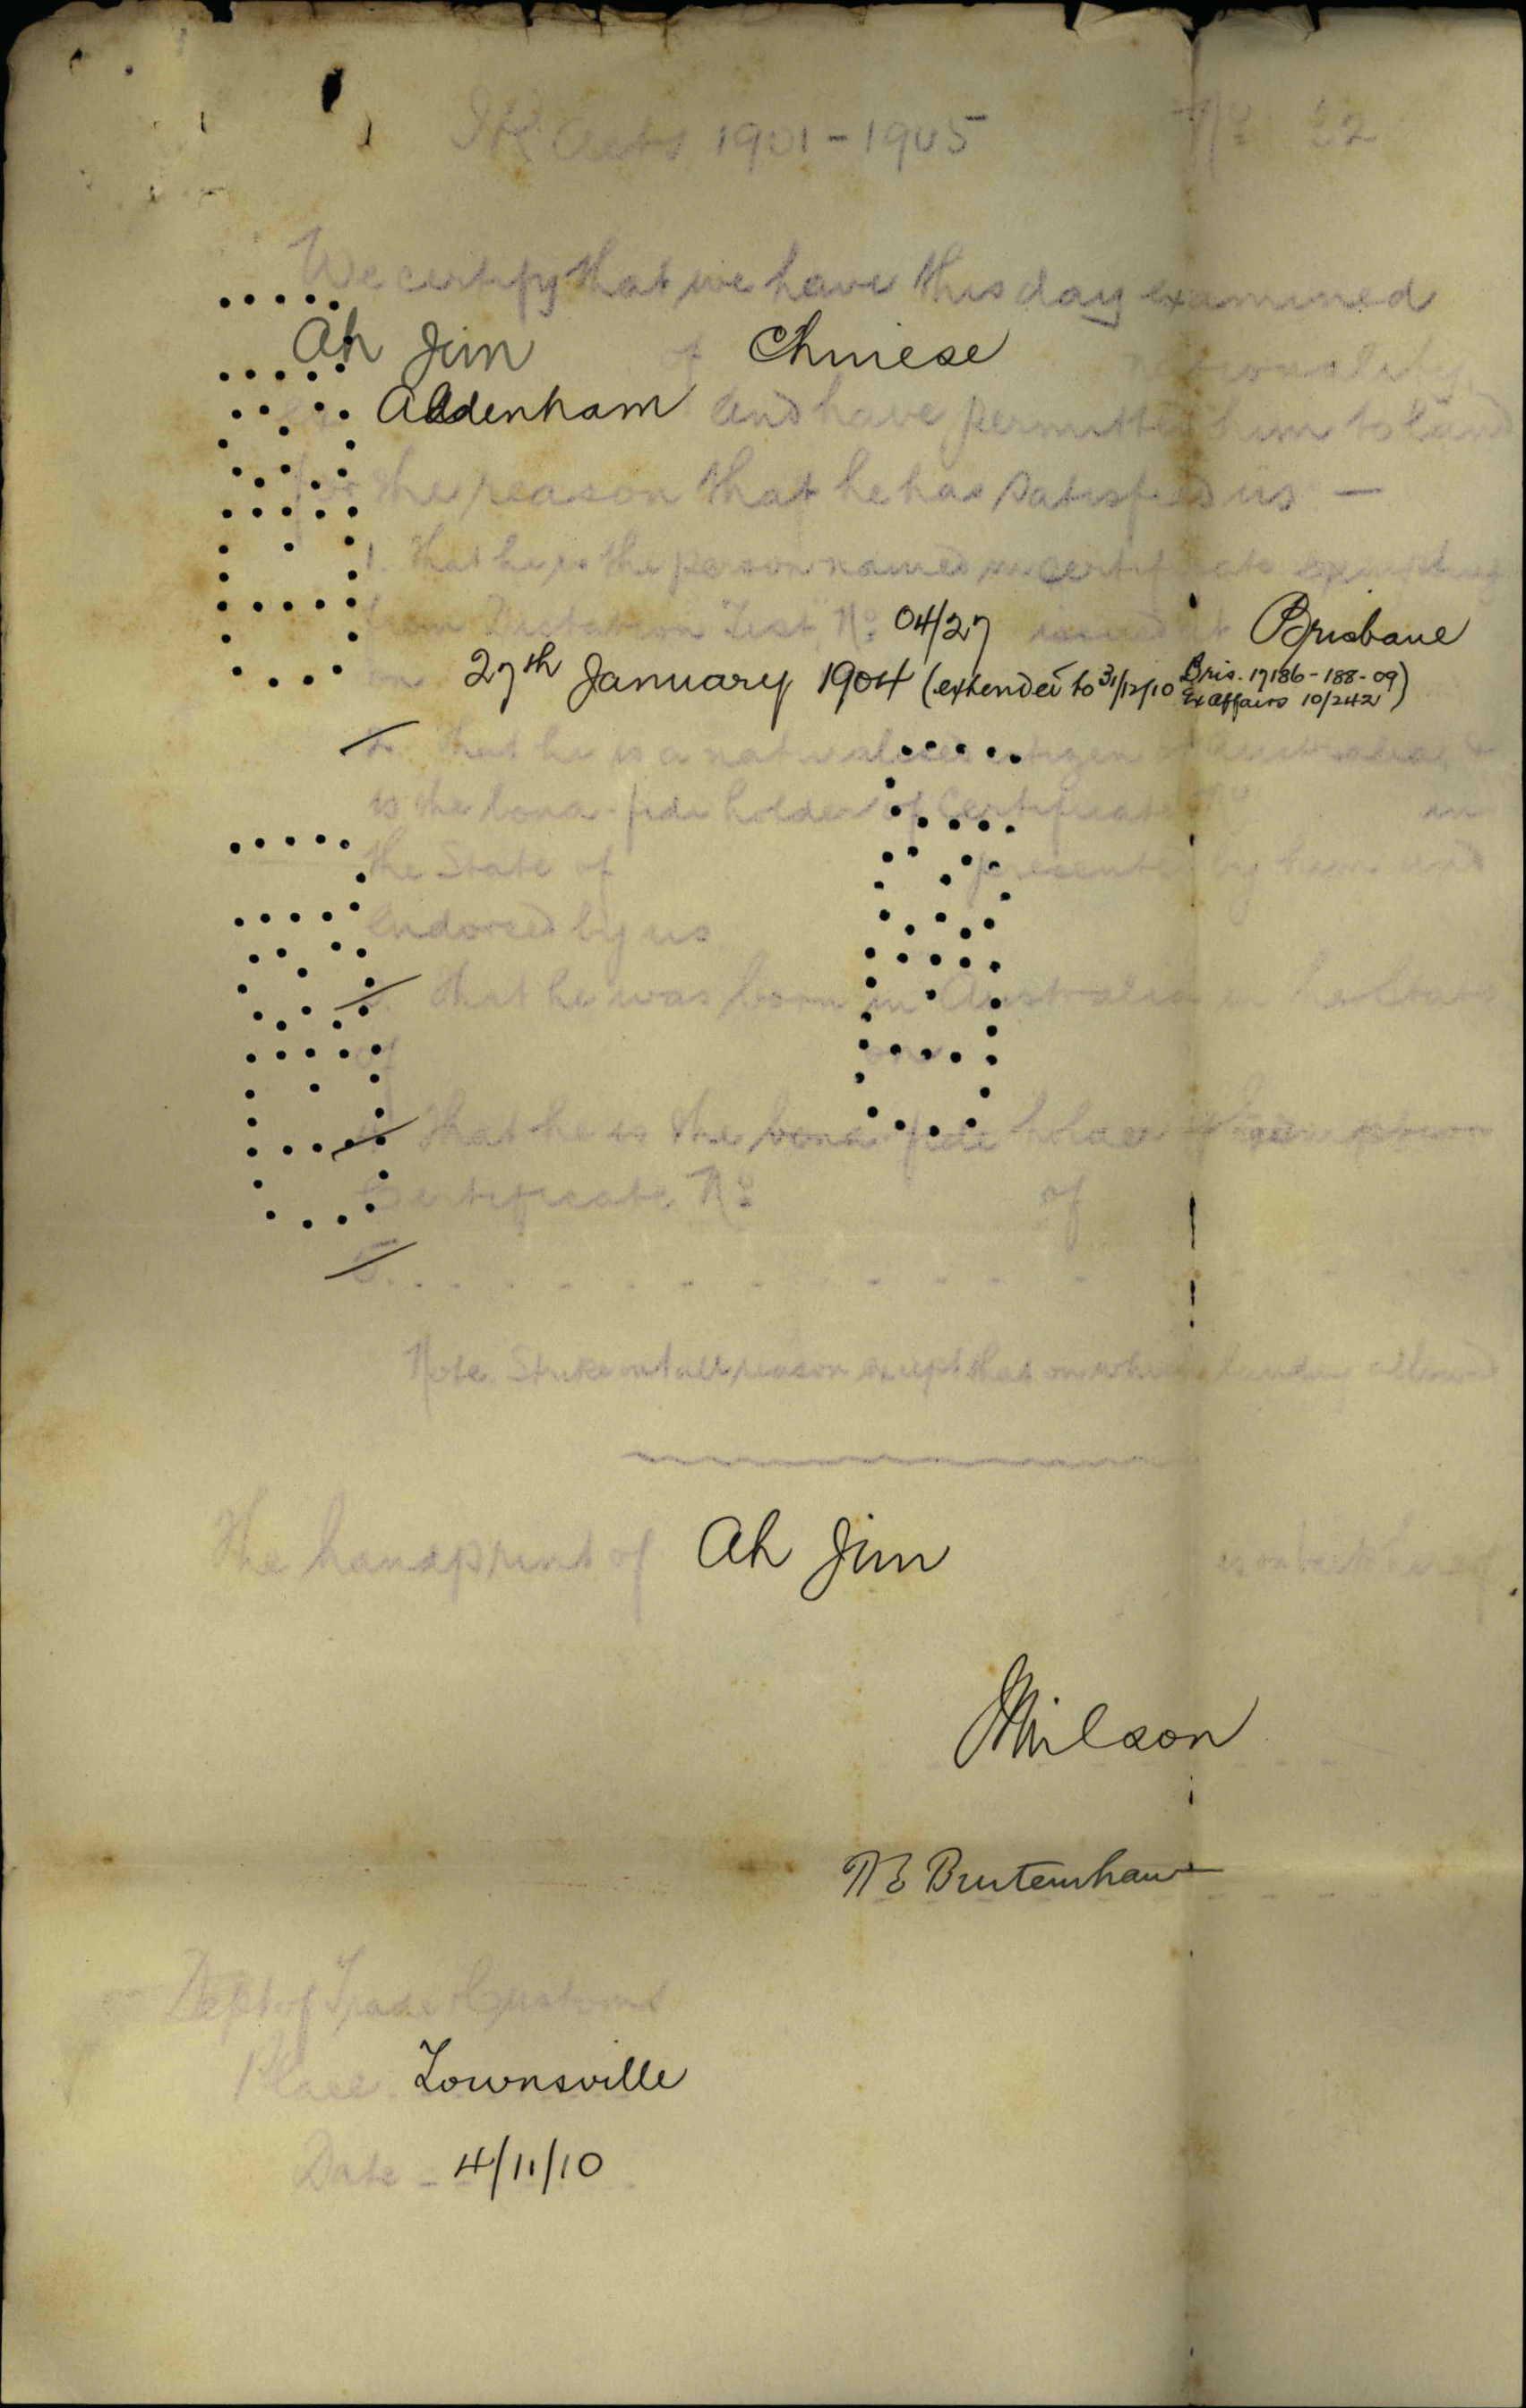 IR Acts 1901-1905 No 32
We certify that we have this day examined
Ah Jim of Chinese nationality
Aldenham and have permitted him to land
for the reason that he has satisfied us —
1. That he is the person named in certificate exempting
from Dictation Test No. 04/27 issued at Brisbane
on 27th January 1904 (extended to 31/12/10 Bris. 17186-188-09
Ex Affairs 10/242)
2. That he is a naturalized citizen of Australia, &
is the bona-fide holder of Certificate No in
the State of presented by him and
endorsed by us
3. That he was born in Australia in the State
of on
4. That he is the bona fide holder of Exemption
Certificate No of
5.
Note Strike out all reason except that on which landing allowed
The handprint of Ah Jim is on back hereof
Milson
Dept of Trade & Customs
Place Townsville
Date - 4/11/10